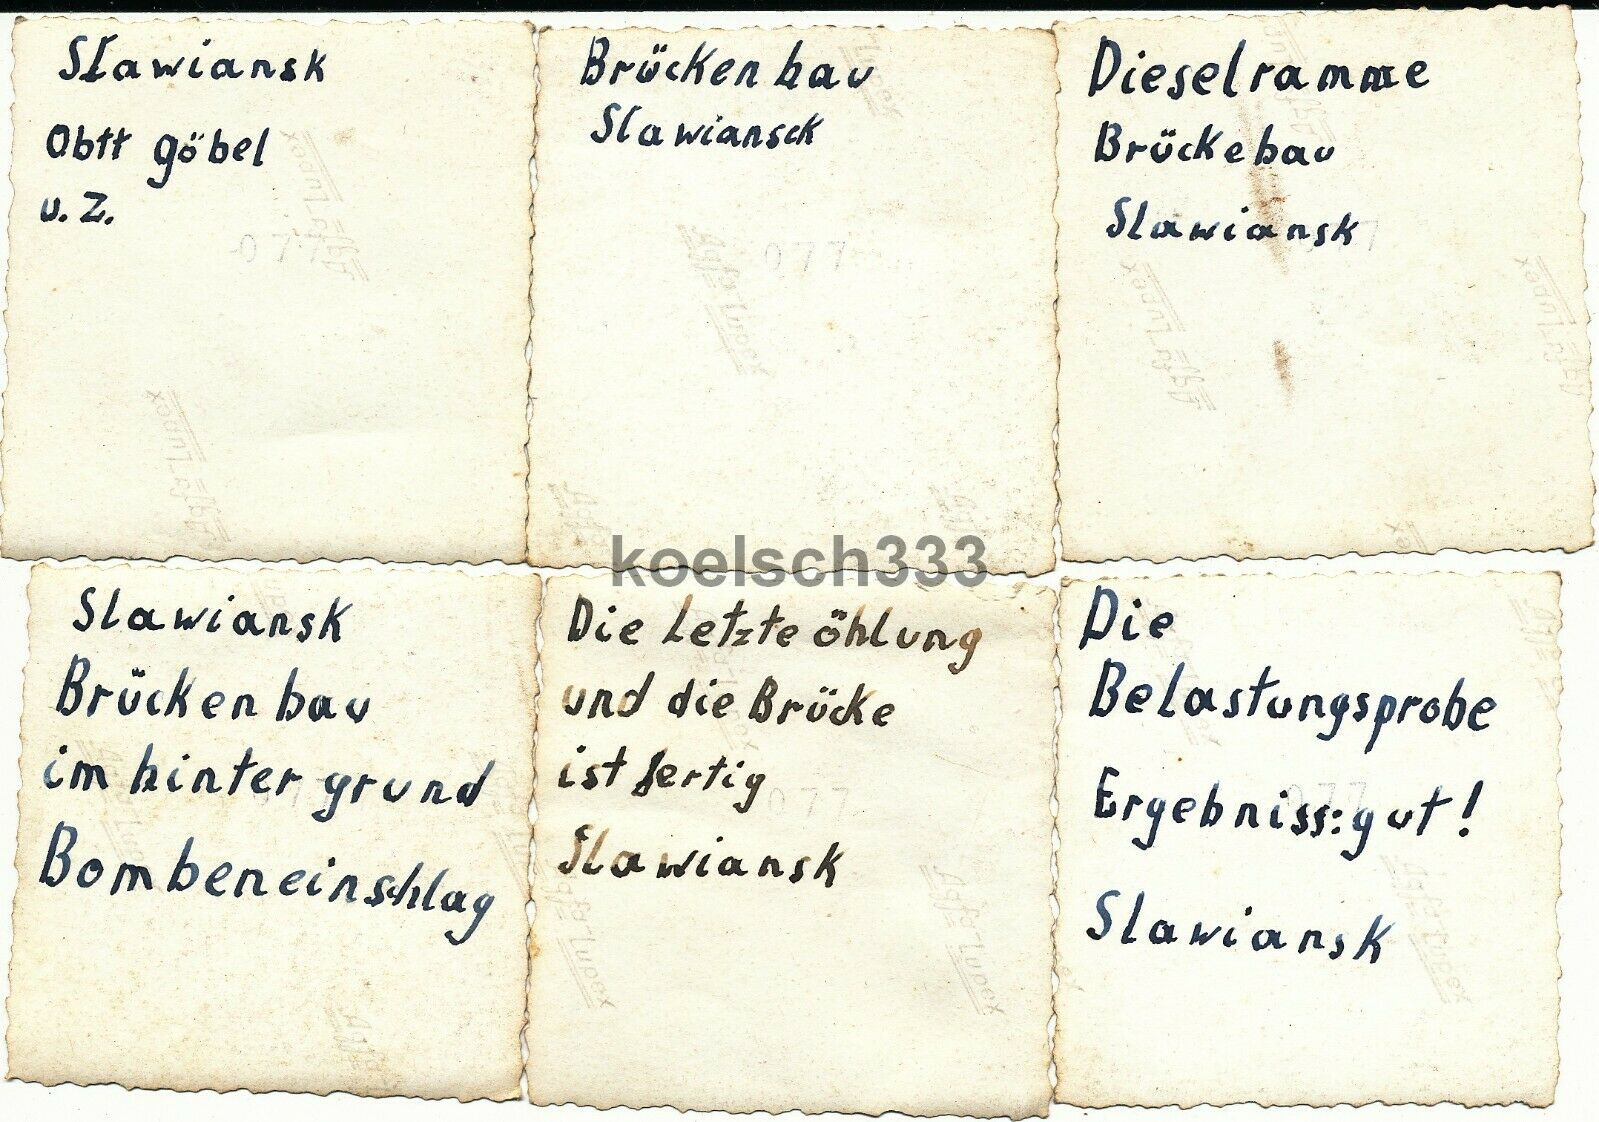 Slawiansk
Obtt göbel
u. Z.
Brücken bau
Slawiansck
Dieselramme
Brückebau
Slawiansk
077
077
Agfa Lupex
koelsch333
Slawiansk
Brücken bau
im hinter grund
Bombeneinschlag
Die Letzte öhlung
und die Brücke
ist fertig
Slawiansk
077
Agfa Lupex
Die
Belastungsprobe
Ergebniss: gut!
Slawiansk